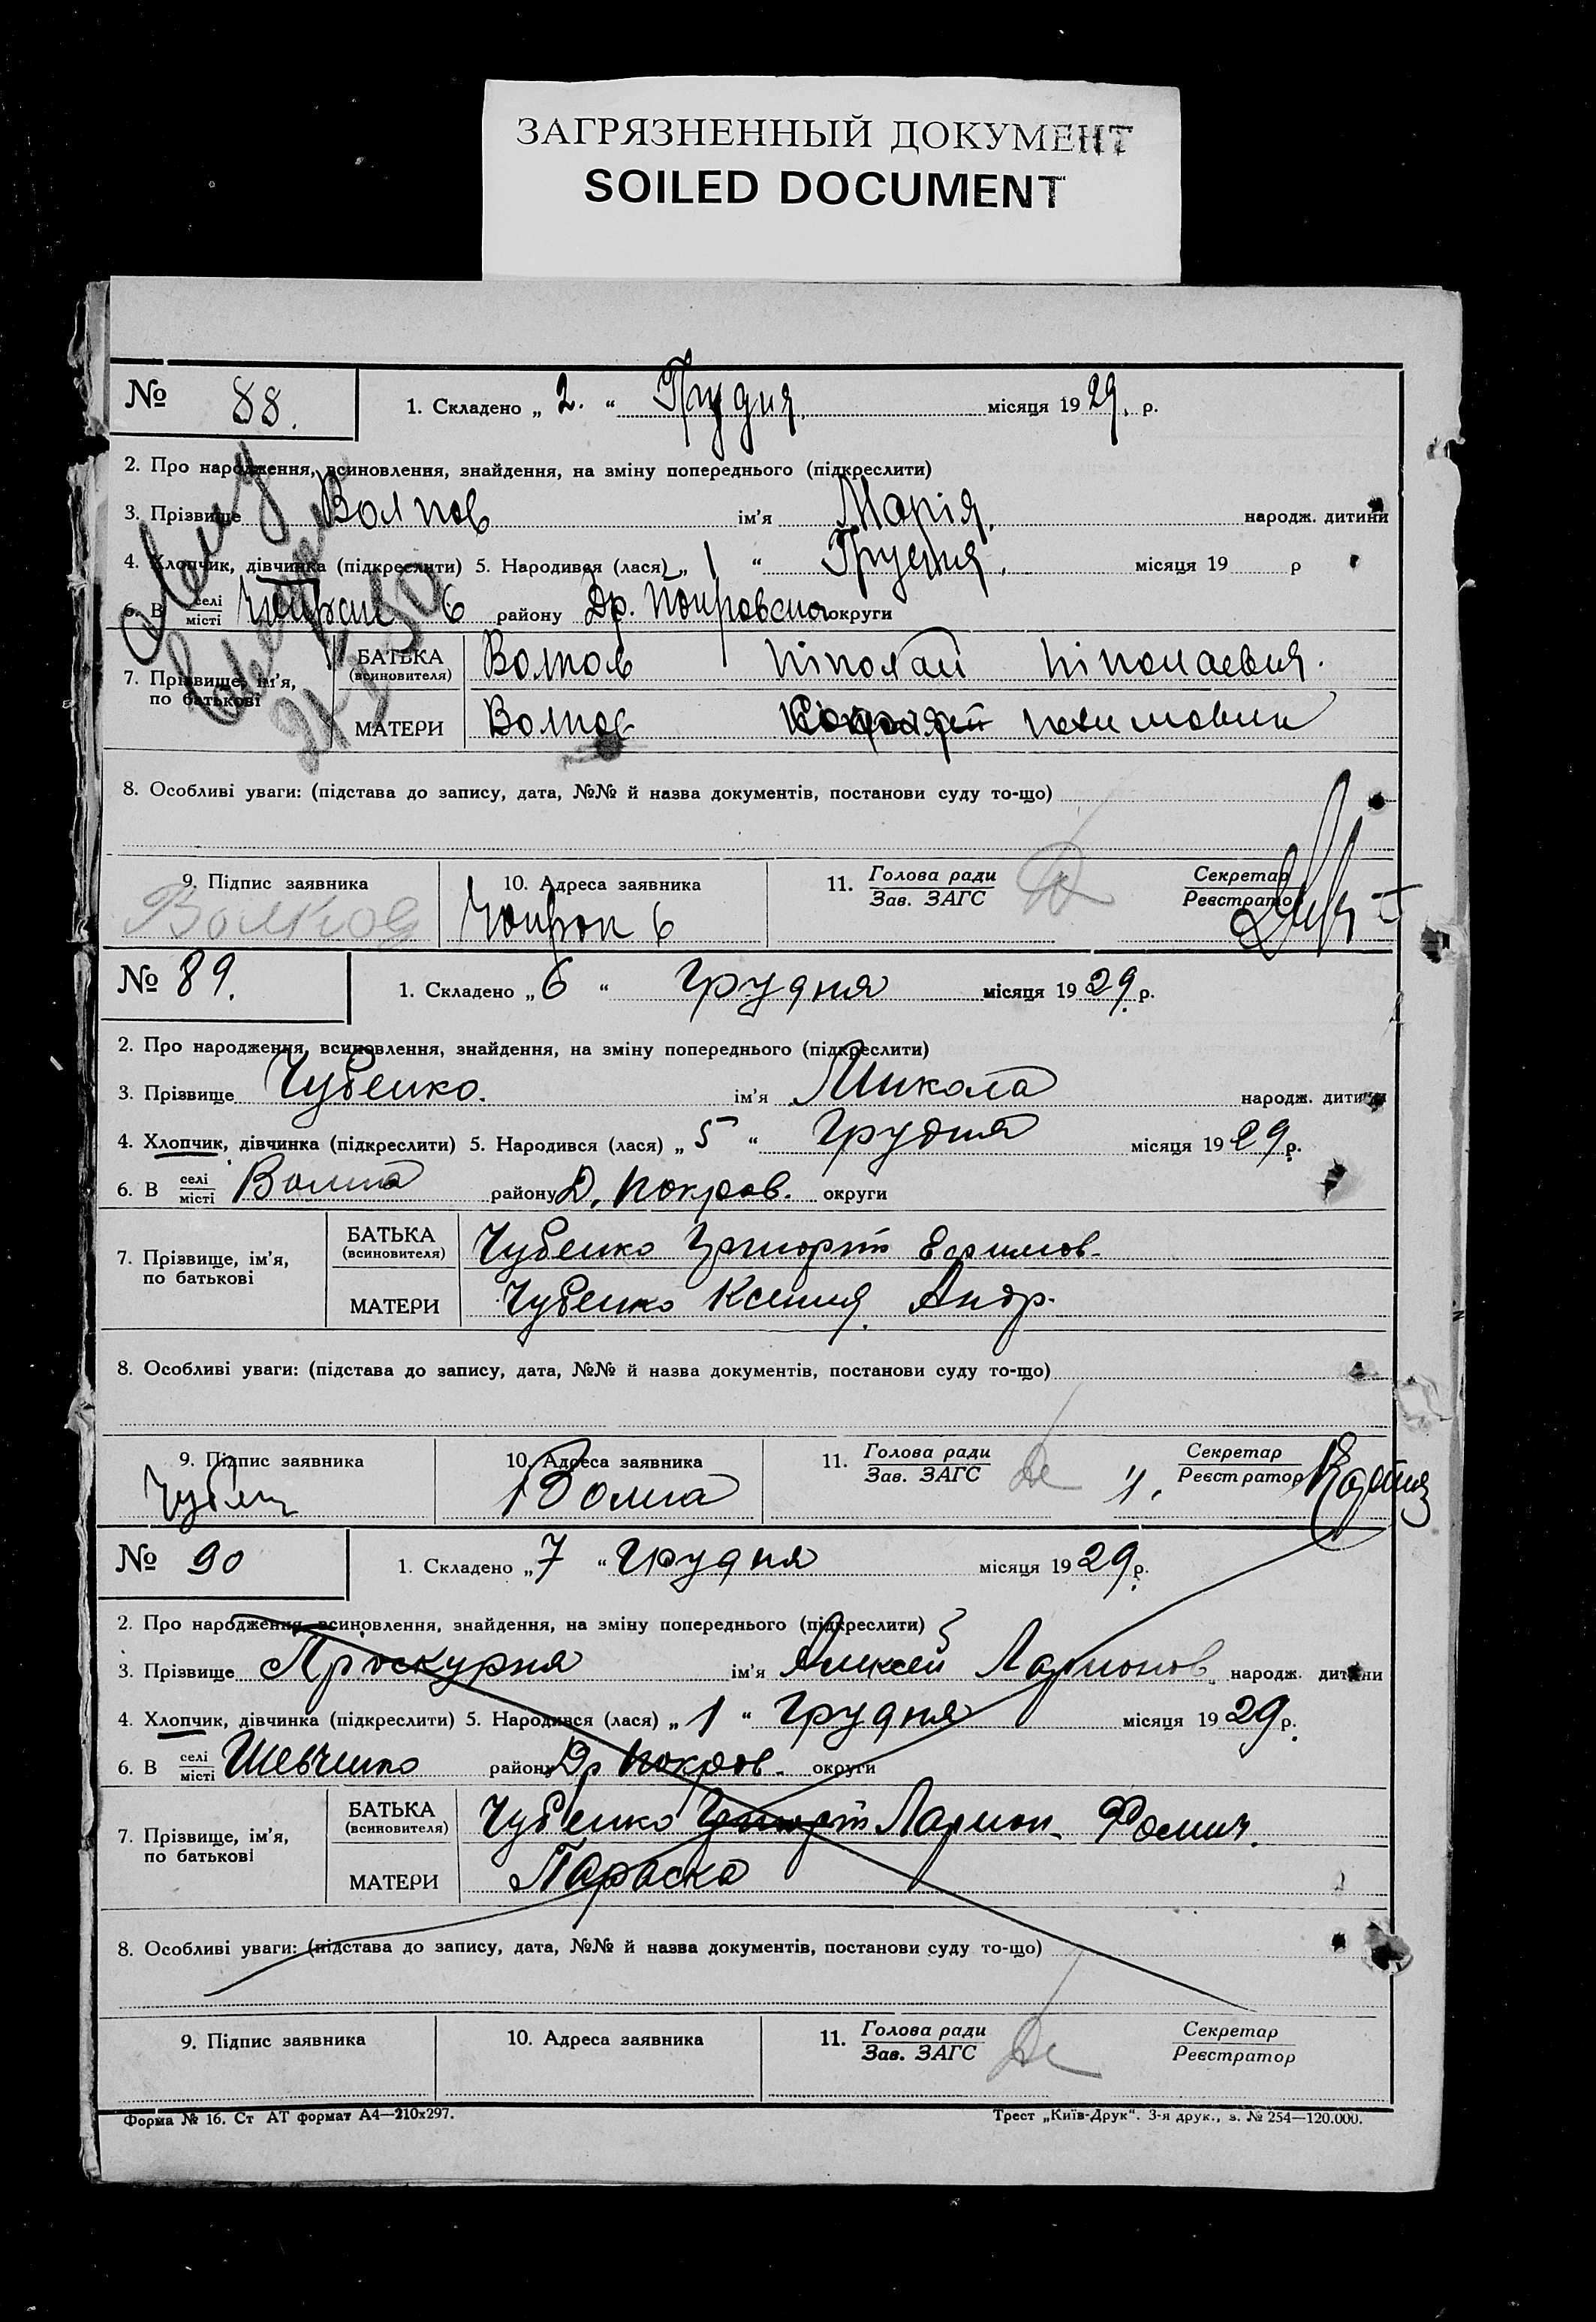 ЗАГРЯЗНЕННЫЙ ДОКУМЕНТ
SOILED DOCUMENT
№ 88. 1. Складено „ 2. “ Грудня. місяця 1929. р.
2. Про народження, всиновлення, знайдення, на зміну попереднього (підкреслити)
3. Прізвище Волков ім’я Марія. народж. дитини
4. Хлопчик, дівчинка (підкреслити) 5. Народився (лася) „ 1 “ Грудня. місяця 19 р
6. В селі місті 6 району Др. Покровско округи
7. Прізвище, ім’я, по батькові
БАТЬКА (всиновителя) Волков Ніколай Ніколаевич.
МАТЕРИ Волков
8. Особливі уваги: (підстава до запису, дата, №№ й назва документів, постанови суду то-що)
9. Підпис заявника 10. Адреса заявника 11. Голова ради Зав. ЗАГС Секретар Реєстратор
Волков 6
№ 89. 1. Складено „ 6 “ грудня місяця 1929. р.
2. Про народження, всиновлення, знайдення, на зміну попереднього (підкреслити)
3. Прізвище Чубенко. ім’я Микола народж. дитини
4. Хлопчик, дівчинка (підкреслити) 5. Народився (лася) „ 5 “ грудня місяця 1929 р.
6. В селі місті району Д. Покров. округи
7. Прізвище, ім’я, по батькові
БАТЬКА (всиновителя) Чубенко Ефимов.
МАТЕРИ Чубенко Ксения Андр.
8. Особливі уваги: (підстава до запису, дата, №№ й назва документів, постанови суду то-що)
9. Підпис заявника 10. Адреса заявника 11. Голова ради Зав. ЗАГС Секретар Реєстратор
№ 90 1. Складено „ 7 “ грудня місяця 1929 р.
2. Про народження, всиновлення, знайдення, на зміну попереднього (підкреслити)
3. Прізвище Проскурня ім’я Алексей Ларионов народж. дитини
4. Хлопчик, дівчинка (підкреслити) 5. Народився (лася) „ 1 “ грудня місяця 1929 р.
6. В селі місті Шевченко району Др Покров. округи
7. Прізвище, ім’я, по батькові
БАТЬКА (всиновителя) Чубенко Ларион Фомич.
МАТЕРИ Параска
8. Особливі уваги: (підстава до запису, дата, №№ й назва документів, постанови суду то-що)
9. Підпис заявника 10. Адреса заявника 11. Голова ради Зав. ЗАГС Секретар Реєстратор
Форма № 16. Ст АТ формат А4—210х297. Трест „Київ-Друк“. 3-я друк., з. № 254—120.000.